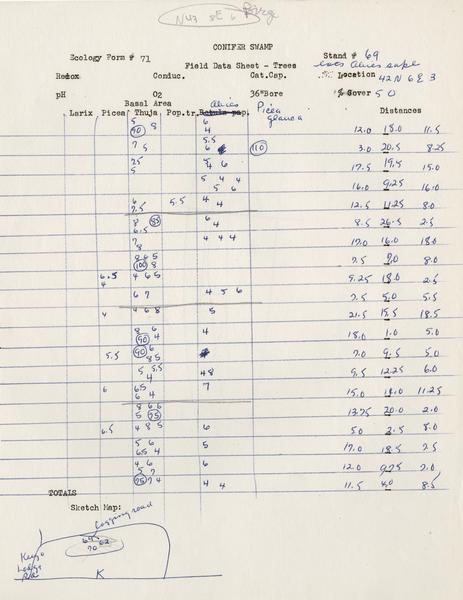 N43 8E 6
CONIFER SWAMP
Ecology Form # 71
Field Data Sheet - Trees
Stand # 69
Redox Conduc. Cat.Cap. Location 42N 6E 3
pH O2 36"Bore % Cover 50
Basal Area
Larix Picea Thuja Pop.tr. Abies Picea glauca Distances
5 8 6
90 4 12.0 18.0 11.5
7 5 5.5 6 110 3.0 20.5 8.25
5 4 6 17.5 19.5 15.0
5 4 4
5 6 16.0 9.25 16.0
6 7.5 5.5 4 4 12.5 11.25 8.0
8 6
6.5 4 8.5 26.5 2.5
7 8 4 4 4 17.0 16.0 18.0
8 6 5
100 8 7.5 7.0 8.0
6.5 4 6 5
4 18.0 2.5
6 7 4 5 6 7.5 5.0 5.5
4 4 6 8 5 21.5 15.5 18.5
8 6 4
90 4 18.0 1.0 5.0
5.5 90 6
8 5 7.0 9.5 5.0
5 5.5
4 4 8 12.25 6.0
6 6 5 7
6 4 15.0 11.25
8 6 6
5 75 13.75 20.0 2.0
6.5 4 8 5 6 5.0 8.0
5 6 5
6 5 4 17.0 18.5 7.5
4 6 6
5 7 12.0 9.75 7.0
75 7 4 4 4 11.5 8.5
TOTALS
Sketch Map:
Logging road
69
70 62
Lodge
K